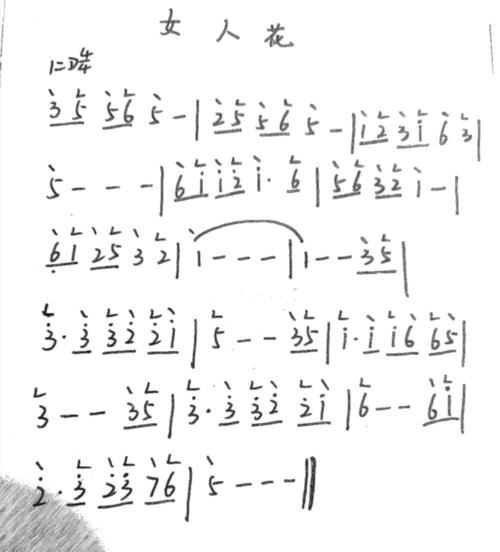 女人花
1=D 4/4
3 5 5 6 5 - | 2 5 5 6 5 - | 1 2 3 1 6 3 |
5 - - - | 6 i i 2̇ i· 6 | 5 6 3 2 i - |
6̣ 1 2 5 3 2 | 1 - - - | 1 - - 3 5 |
3̇· 3̇ 3̇ 2̇ 2̇ i | 5 - - 3 5 | i· i i 6 6 5 |
3 - - 3 5 | 3̇· 3̇ 3̇ 2̇ 2̇ i | 6 - - 6 i |
2̇· 3̇ 2̇ 3̇ 7 6 | 5 - - - ‖